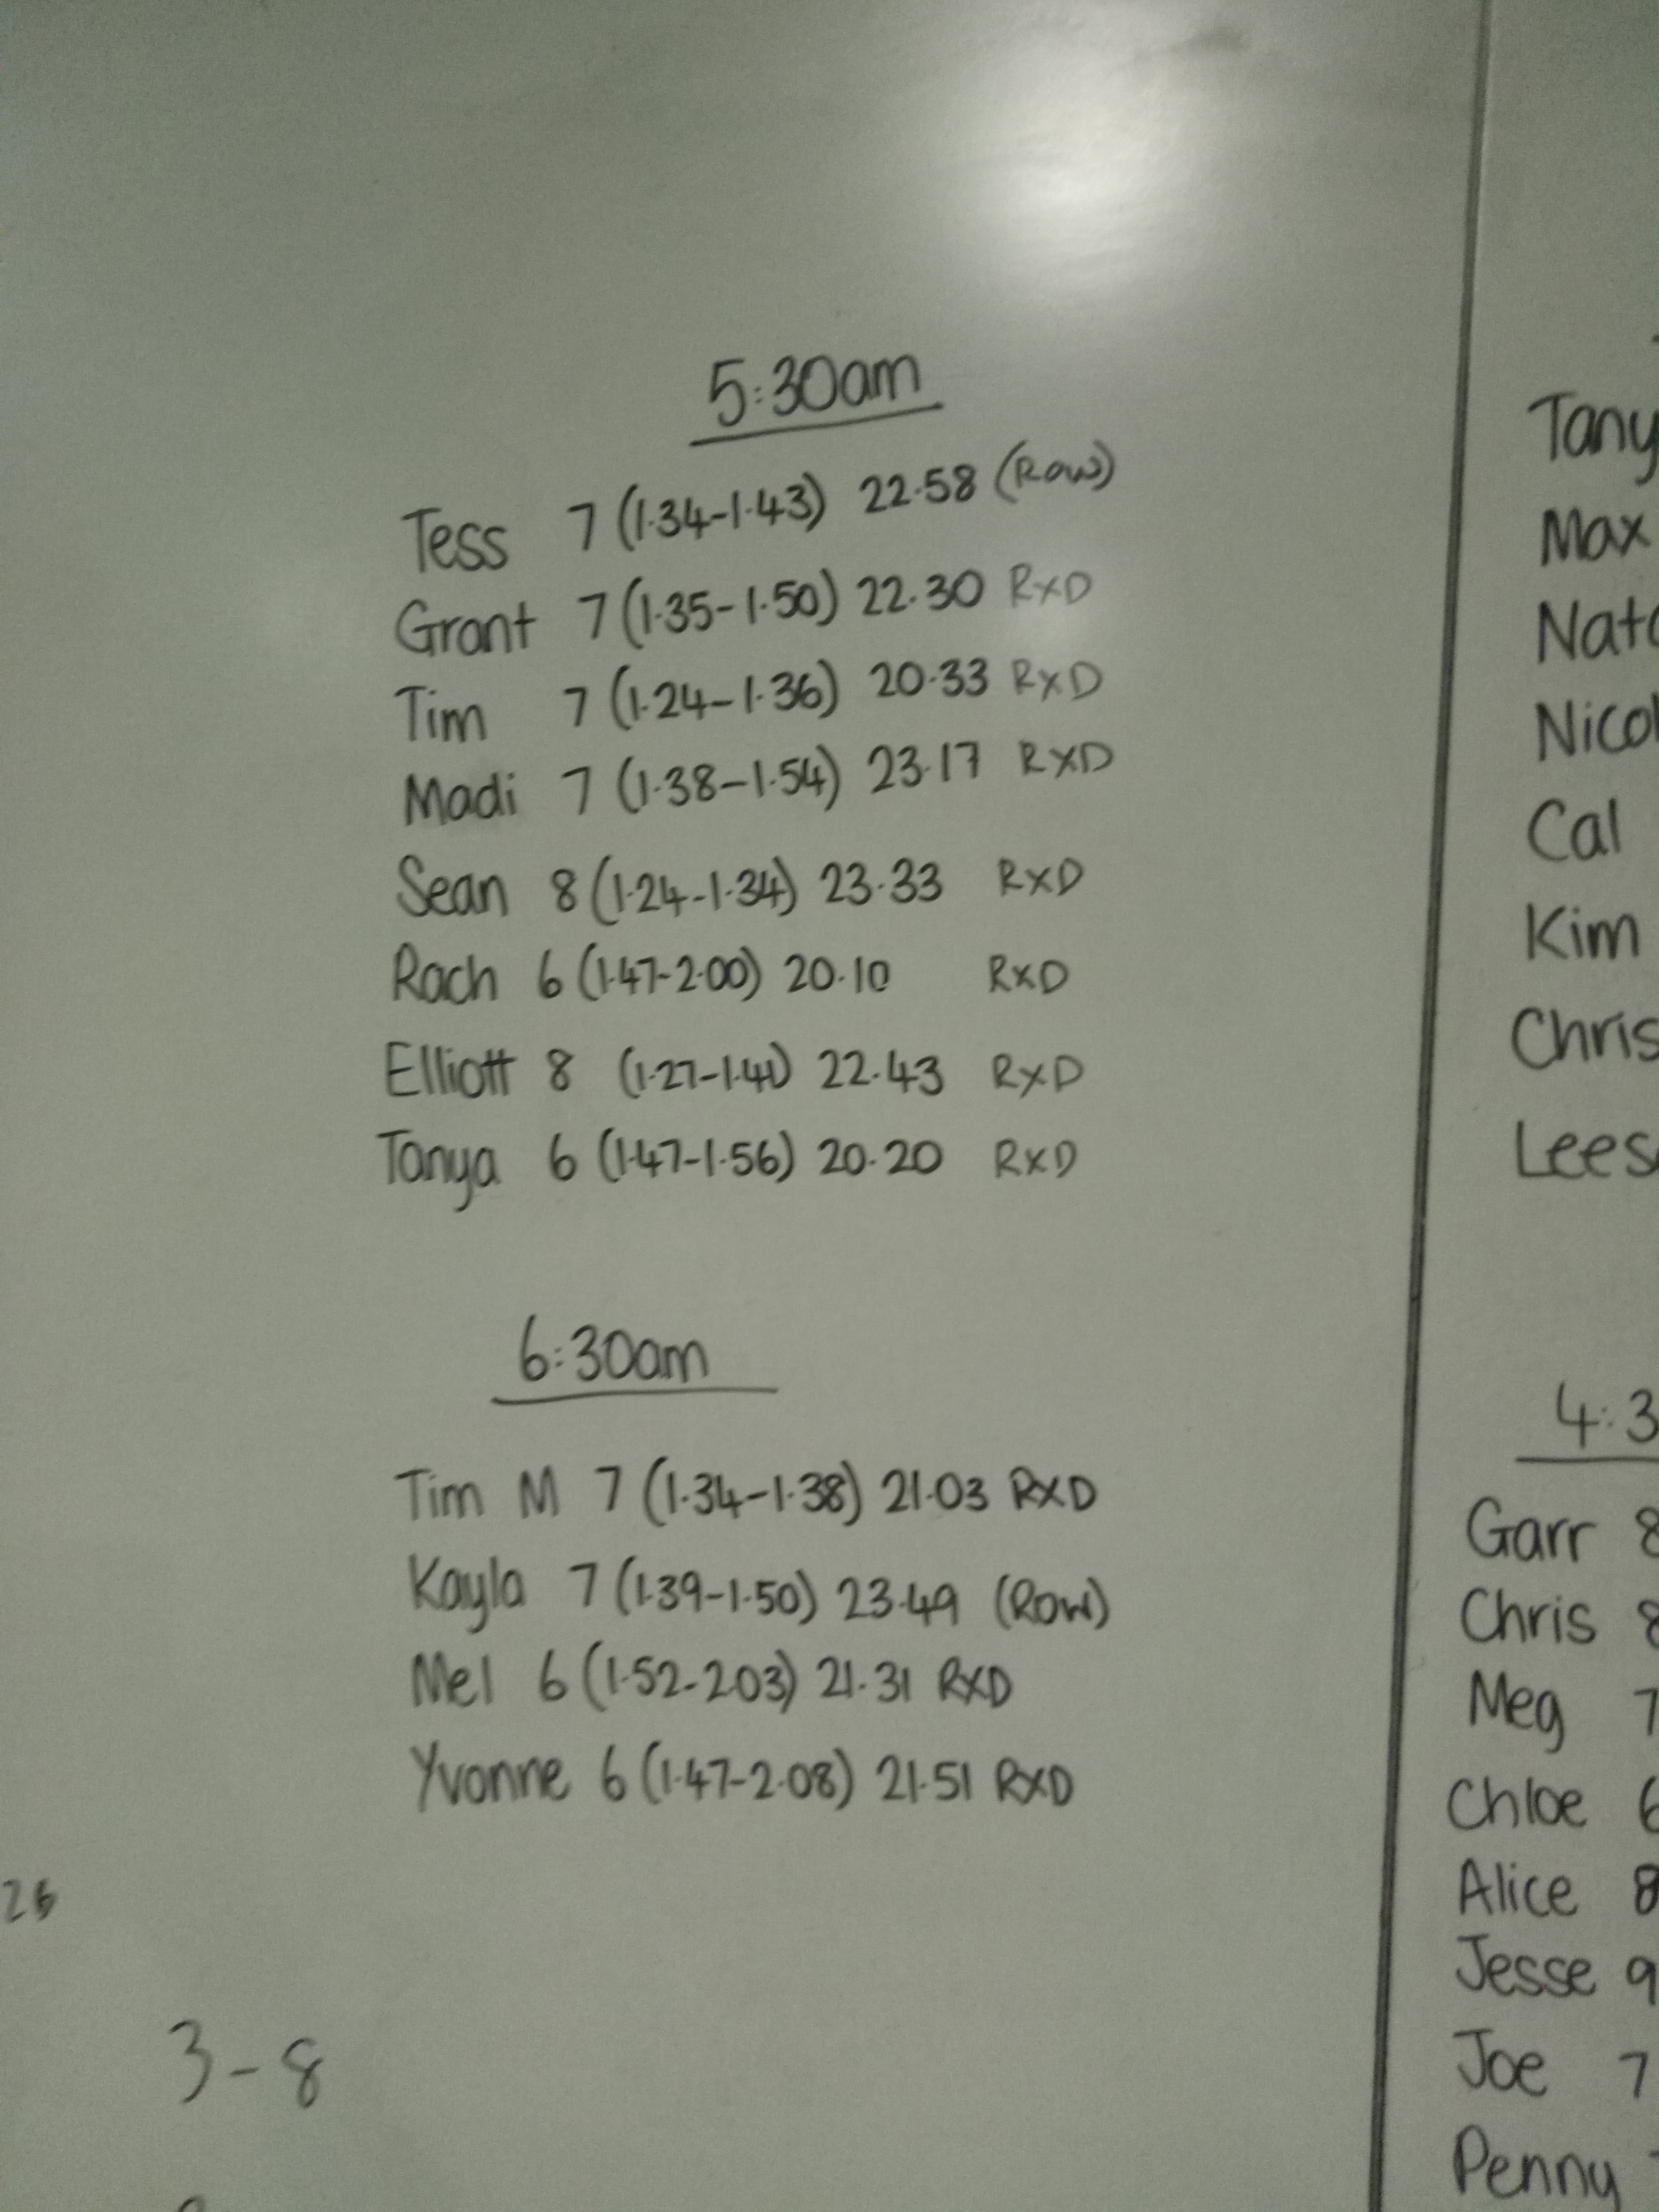 5:30am
Tess 7 (1.34-1.43) 22.58 (Row)
Grant 7 (1.35-1.50) 22.30 RxD
Tim 7 (1.24-1.36) 20.33 RxD
Madi 7 (1.38-1.54) 23.17 RxD
Sean 8 (1.24-1.34) 23.33 RxD
Rach 6 (1.47-2.00) 20.10 RxD
Elliott 8 (1.27-1.41) 22.43 RxD
Tanya 6 (1.47-1.56) 20.20 RxD
6:30am
Tim M 7 (1.34-1.38) 21.03 RXD
Kayla 7 (1.39-1.50) 23.49 (Row)
Mel 6 (1.52-2.03) 21.31 RXD
Yvonne 6 (1.47-2.08) 21.51 RXD
26
3-8
Tany
Max
Nat
Nico
Cal
Kim
Chris
Lees
4:3
Garr 8
Chris 8
Meg 7
Chloe 6
Alice 8
Jesse 9
Joe 7
Penny